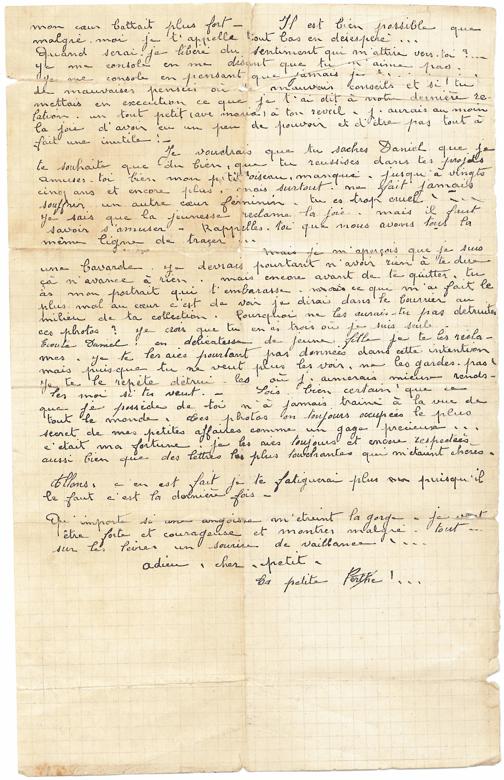 mon cœur battait plus fort - Il est bien possible que
malgré moi je t'appelle tout bas en désespéré ...
Quand serai je libéré du sentiment qui m'attire vers toi ? ...
je me console en me disant que tu n'aime pas.
je me console en pensant que jamais je
de mauvaises pensées ou mauvais conseils et si tu
mettais en execution ce que je t'ai dit à notre dernière re-
lation. un tout petit (ave maria) à ton reveil. j'aurais au moin
la joie d'avoir eu un peu de pouvoir et d'être pas tout à
fait une inutile. -
Je voudrais que tu saches Daniel que je
te souhaite que du bien, que tu reussises dans tes projets
amuses-toi bien mon petit oiseau manqué. jusqu'à vingts
cinq ans et encore plus, mais surtout ne fait jamais
souffrir un autre cœur féminin tu es trop cruel ! ...
je sais que la jeunesse reclame la joie. mais il faut
savoir s'amuser. Rappelles-toi que nous avons tous la
même ligne de tracer ...
mais je m'aperçois que je suis
une bavarde. je devrais pourtant n'avoir rien à te dire
ça n'avance à rien. mais encore avant de te quitter. tu
as mon portrait qui t'embarasse. ce que m'a fait le
plus mal au cœur c'est de voir je dirais dans le courrier au
milieu de ta collection. Pourquoi ne les aurais-tu pas detruites
ces photos ? je crois que tu en as trois où je suis seule
Ecoute Daniel! en délicatesse de jeune fille je te les récla-
mes. je te les aies pourtant pas données dans cette intention
mais puisque tu ne veut plus les voir, ne les gardes pas !
je te le repète détrui les où j'aimerais mieux rends-
les moi si tu veut. - Sois bien certain que ce
que je possède de toi n'a jamais trainé à la vue de
tout le monde. tes photos on toujours occupées le plus
secret de mes petites affaires comme un gage précieux ...
c'était ma fortune. je les aies toujours et encore respectées
aussi bien que des lettres les plus touchantes qui m'étaient chères.
Allons, c'en est fait je te fatiguerai plus puisqu'il
le faut c'est la dernière fois -
Qu'importe si une angoisse m'étreint la gorge. je veut
être forte et courageuse et montrer malgré tout --
sur les lèvres un sourire de vaillance ! ...
adieu, cher petit.
ta petite ! ...